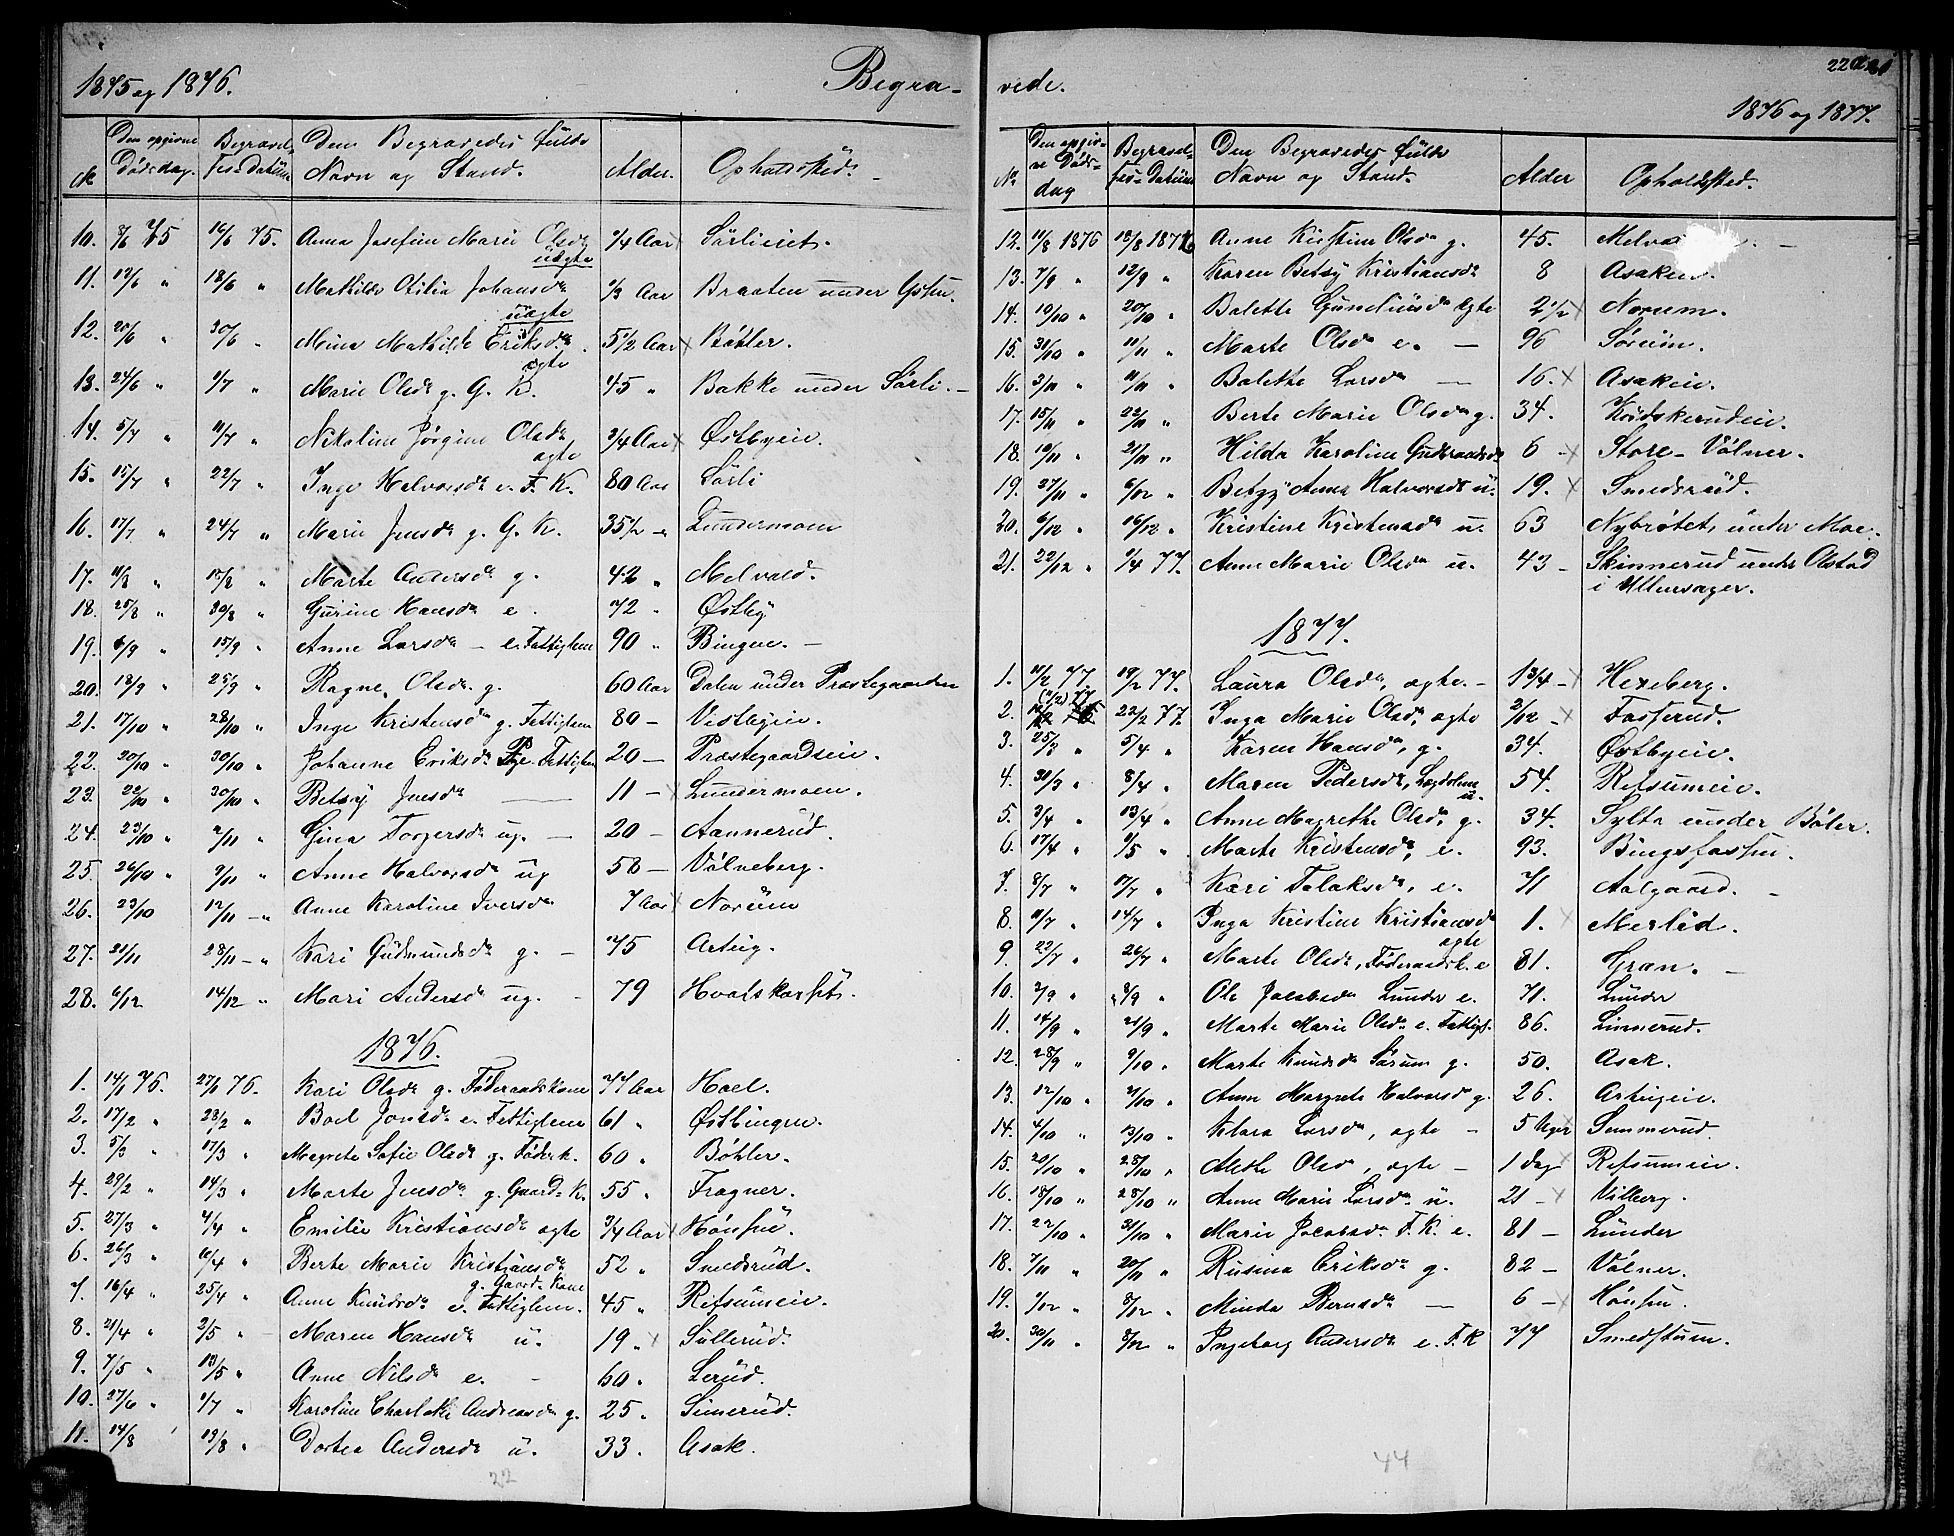 1875 og 1876. Begra-
№ Den opgivne Dødsdag. Begravelses-Datum Den Begravedes fulde Navn og Stand. Alder. Opholdssted.
10. 8/6 75 16/6 75. Anna Josefine Marie Olsdr uægte 1/4 Aar Sørlieiet.
11. 12/6 " 18/6 " Mathilde Otilia Johansdr uægte 1/3 Aar Braaten under
12. 20/6 " 30/6 " Mina Mathilde Eriksdr ægte 5 1/2 Aar Bøhler.
13. 24/6 " 1/7 " Marie Olsdr g. G. K. 45 " Bakke under Sørli. -
14. 5/7 " 11/7 " Nikoline Jørgine Olsdr ægte 3/4 Aar Østbyeie.
15. 15/7 " 22/7 " Inge Halvorsdr e. F. K. 80 Aar Sørli
16. 17/7 " 24/7 " Marie Jensdr g. G. K. 35 1/2 - Lundermoen
17. 11/8 " 18/8 " Marte Andersdr g. 42 " Melvold.
18. 25/8 " 30/8 " Gurine Hansdr e. 72 " Østby
19. 6/9 " 15/9 " Anne Larsdr - e. Fattiglem 90 " Bingen. -
20. 18/9 " 25/9 " Ragne Olsdr g. 60 Aar Dalen under Præstegaarden
21. 17/10 " 28/10 " Inge Kristensdr g. Fattiglem 80 - Vestbyeie.
22. 20/10 " 30/10 " Johanne Eriksdr Pge. Fattiglem 20 - Præstegaardseie.
23. 22/10 " 30/10 " Betsy Jensdr 11 - Lundermoen.
24. 23/10 " 2/11 " Gina Torgersdr ug. - 20 - Aannerud.
25. 26/10 " 9/11 " Anne Halvorsdr ug 58 - Vølneberg.
26. 23/10 12/11 - " Anne Karoline Iversdr 7 Aar Norum
27. 21/11 28/11 - " Kari Gudmundsdr g. - 75 Arteig.
28. 6/12 14/12 " Mari Andersdr ug. - 79
1876.
1. 14/1 76. 27/1 76. Kari Olsdr g. Føderaadskone 77 Aar Hael.
2. 17/2 " 28/2 " Boel Jonsdr e. Fattiglem 61 " Østbingen.
3. 5/3 " 17/3 " Magrete Sofie Olsdr g. Føderk. 60 " Bøhler.
4. 29/2 " 14/3 " Marte Jensdr g. Gaard.K. 55 " Fragner.
5. 27/3 " 4/4 " Emilie Kristiansdr ægte 3/4 Aar Hønsen.
6. 26/3 " 6/4 " Berte Marie Kristiansdr g. Gaard.Kone 52 " Smedsrud.
7. 16/4 " 25/4 " Anne Knudsdr e. Fattiglem. 45 " Refsumeie.
8. 21/4 " 2/5 " Maren Hansdr u. 19 " Sullerud.
9. 7/5 " 13/5 " Anne Nilsdr e. - 60. Lerud.
10. 27/6 " 1/7 " Karoline Charlotte Andreasdr g. 25 " Simerud.
11. 14/8 19/8 " Dortea Andersdr u. 33. Asak.
22
vede. 220
1876 og 1877.
№ Den opgivne Dødsdag Begravelses-Datum Den Begravedes fulde Navn og Stand. Alder Opholdssted.
12. 11/8 1876 18/8 1876 Anne Kirstine Olsdr g. 45. -
13. 7/9 " 12/9 " Karen Betsy Kristiansdr 8 Asakeie.
14. 10/10 " 20/10 " Bolette Gundersdr ægte 2 1/2 Norum.
15. 31/10 " 11/11 " Marte Olsdr e. - 96 Sørum.
16. 3/11 " 11/11 " Bolette Larsdr - 16. Asakeie.
17. 15/11 " 22/11 " Berte Marie Olsdr g. 34.
18. 10/11 " 21/11 " Hilda Karoline Gudbrandsdr 6 - Store-Vølner.
19. 27/11 " 6/12 " Betzy Anna Halvorsdr u. 19. Smedsrud.
20. 6/12 " 16/12 " Kristine Kristensdr u. 63 Nybrøtet under Moe.
21. 22/12 " 1/4 77. Anne Marie Olsdr u. 43 - Skinnerud under Olstad i Ullensager.
1877.
1. 11/2 77. 19/2 77. Laura Olsdr, ægte. - 1 3/4 - Hexeberg.
2. (11/2) 77 22/2 77. Inga Marie Olsdr ægte 2/12 - Fosserud.
3. 25/3 " 5/4 " Karen Hansdr, g. 34. Østbyeie.
4. 31/3 " 8/4 " Maren Pedersdr, Lægdslem u. 54. Refsumeie.
5. 3/4 " 13/4 " Anne Magrethe Olsdr g. 34. Sylta under Bøler.
6. 17/4 " 1/5 " Marte Kristensdr, e. 93. Bingsfossen.
7. 8/7 " 17/7 " Kari Folaksdr, e. 71 Aalgaard. -
8. 11/7 " 14/7 " Inga Kristine Kristiansdr ægte 1. Merlid.
9. 22/7 " 26/7 " Marte Olsdr, Føderaadsk. e 81. Gran. -
10. 2/9 " 8/9 " Ole Jacobsdr Lunder e. 71. Lunder
11. 14/9 " 21/9 " Marte Marie Olsdr e. Fattigl. 86. Linnerud.
12. 28/9 " 9/10 " Marte Knudsdr Sørum g. 50. Asak.
13. 12/10 " 21/10 " Anne Margrete Halvorsd g. 26. Arteigeie.
14. 4/10 " 13/10 " Klara Larsdr, ægte - 5 Uger Semmerud.
15. 20/10 " 28/10 " Alethe Olsdr, ægte - 1 Dag Refsumeie.
16. 18/10 " 28/10 " Anne Marie Larsdr u. 21 - Vilberg.
17. 22/10 " 31/10 " Marie Jacobsdr F. K. e. 81 - Lunder
18. 7/11 " 20/11 " Rusina Eriksdr g. 82 - Vølner.
19. 1/12 " 8/12 " Minda Berntsdr - 6 - Hønsen.
20. 30/11 " 8/12 " Ingeborg Andersdr e. F.K 77 Smedstuen.
44